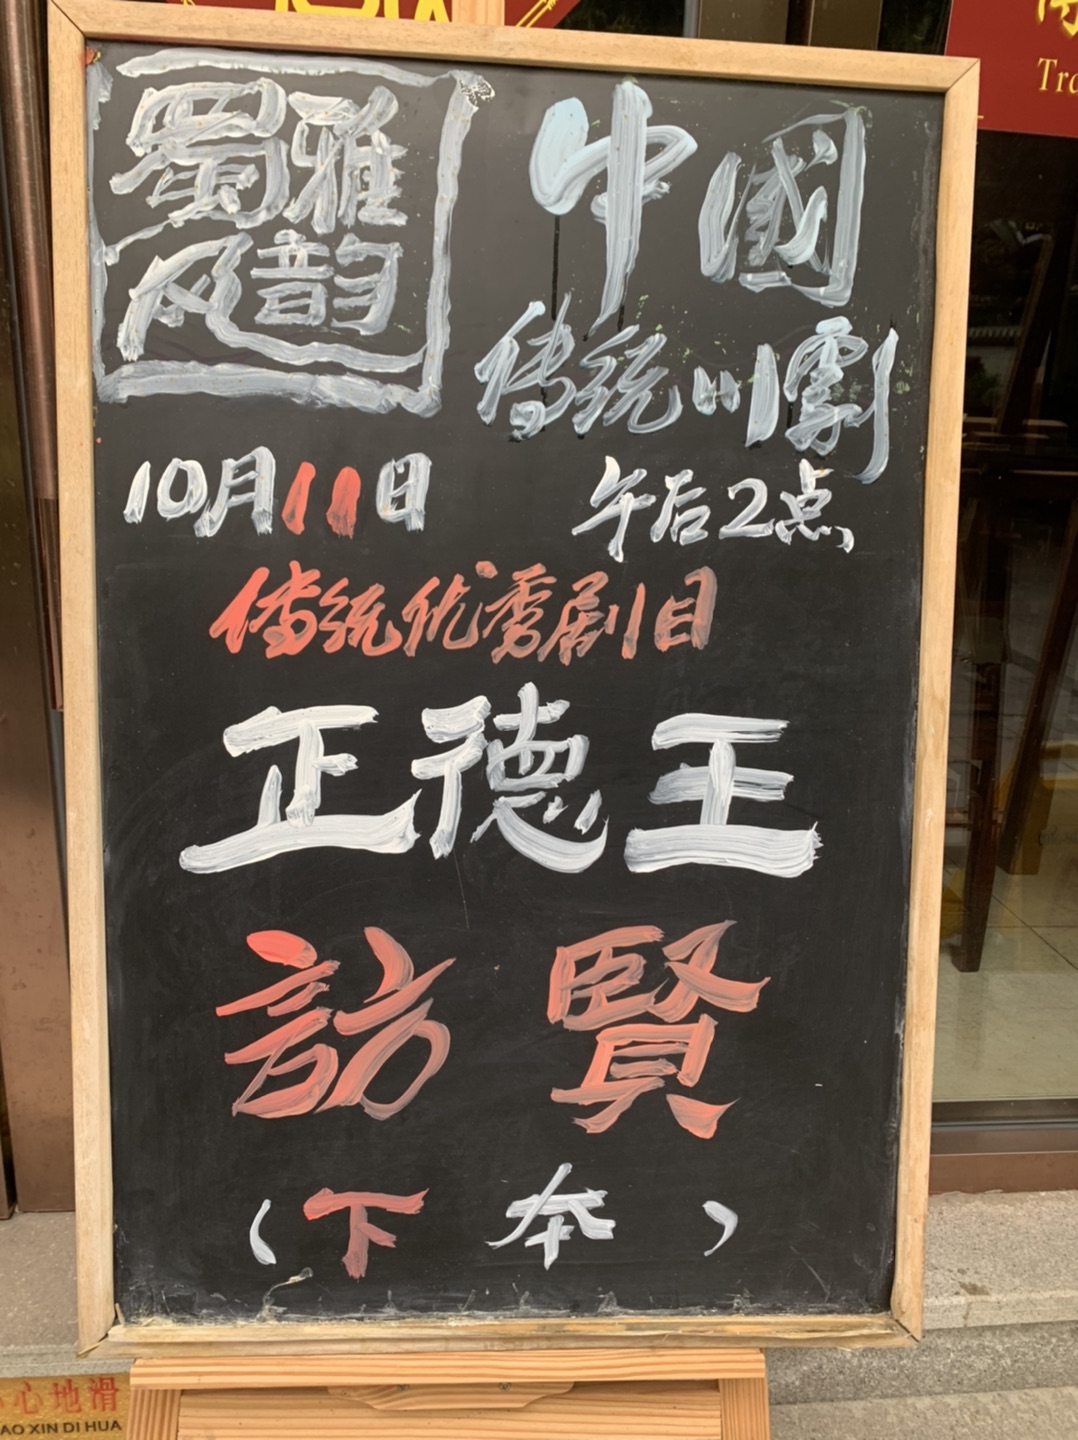 蜀雅
风韵
中國
传统川劇
10月11日
午后2点
传统优秀剧目
正德王
訪賢
（下本）
Tra
心地滑
AO XIN DI HUA